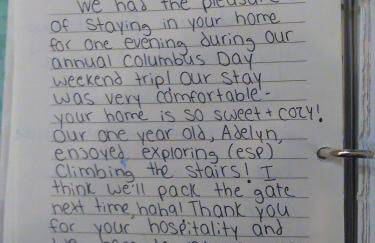 We had the pleasure
of staying in your home
for one evening during our
annual Columbus Day
weekend trip! Our stay
was very comfortable-
your home is so sweet + cozy!
Our one year old, Adelyn,
enjoyed exploring (esp)
climbing the stairs! I
think we'll pack the gate
next time, haha! Thank you
for your hospitality and